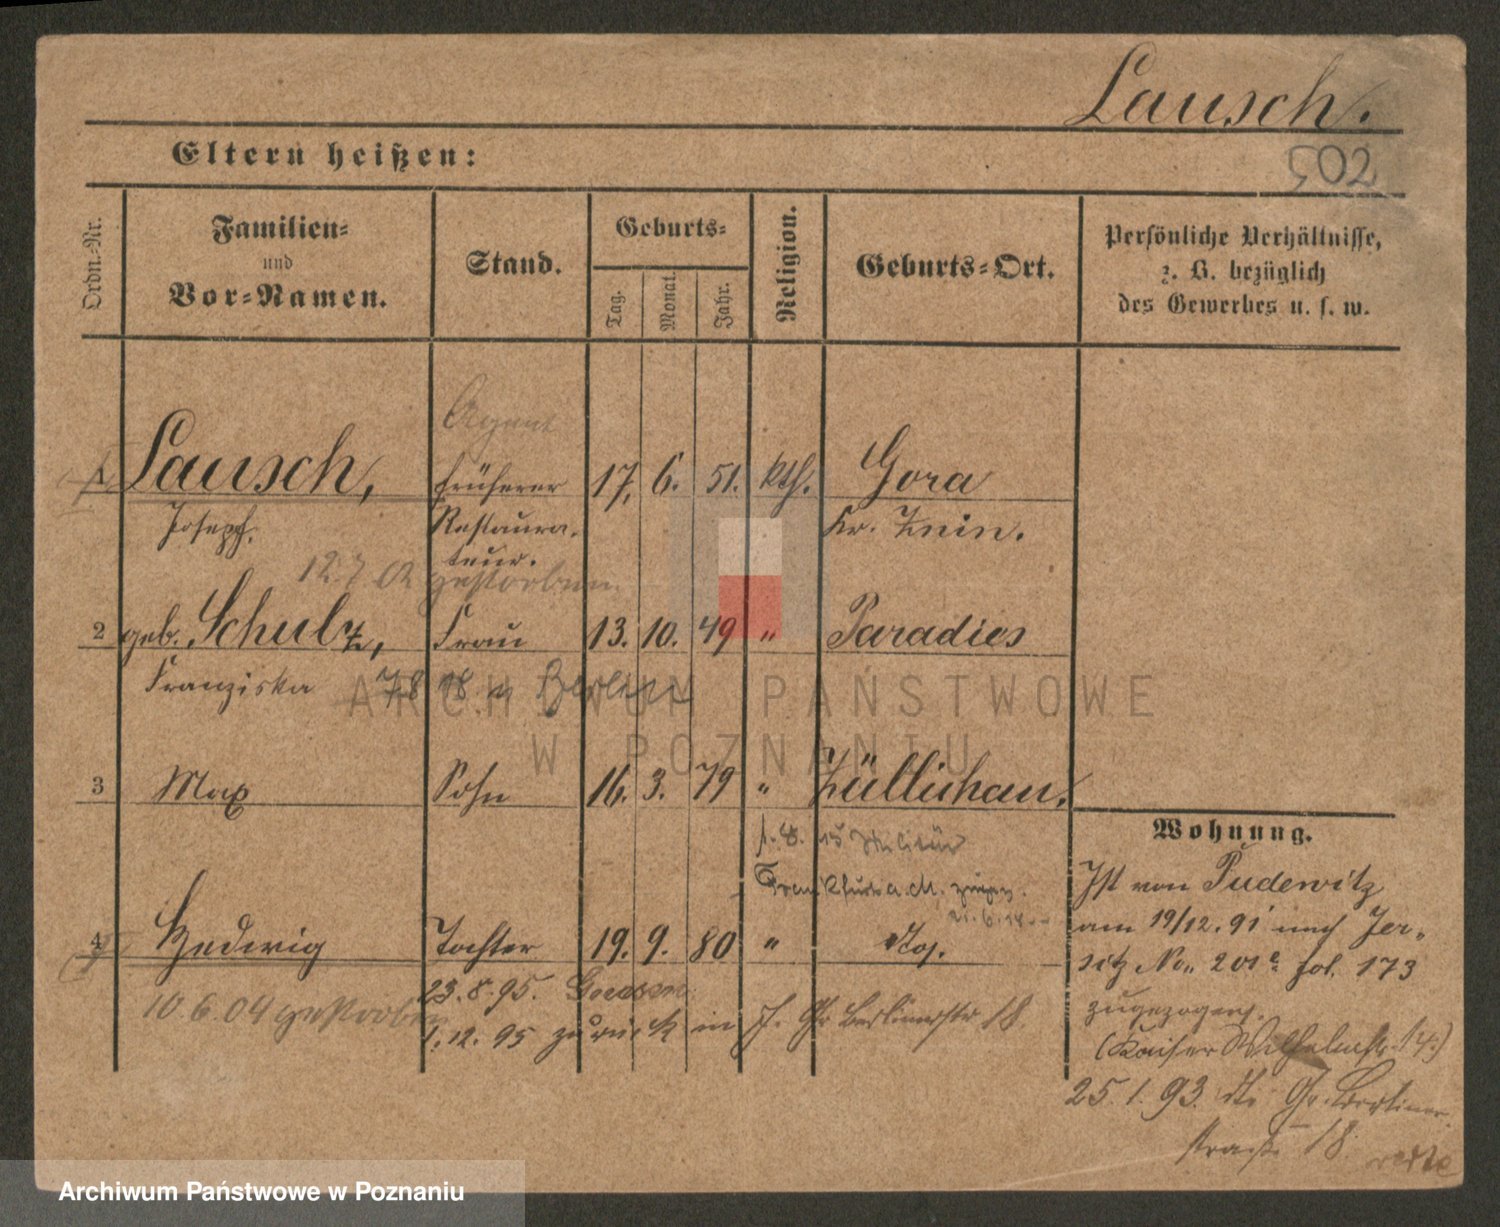 Lausch.
502
Eltern heißen:
Ordn.-Nr.
Familien-
und
Vor-Namen.
Stand.
Geburts-
Tag.
Monat.
Jahr.
Religion.
Geburts-Ort.
Persönliche Verhältnisse,
z. B. bezüglich
des Gewerbes u. s. w.
Agent
1 Lausch, früherer 17. 6. 51. kth. Gora
Joseph. Restaura- Kr. Znin.
teur.
12.7.02 gestorben
2 geb. Schulz, Frau 13. 10. 49 " Paradies
Franziska 7.8.18 n Berlin
ARCHIWUM PAŃSTWOWE
W POZNANIU
3 Max Sohn 16. 3. 79 " Züllichau.
Militär
Frankfurt a. M.
21.6.14
4 Hedwig Tochter 19. 9. 80 " Pos.
10.6.04 gestorben
23.8.95.
1.12.95 zurück in J. Gr Berlinerstr 18
Wohnung.
Ist von Pudewitz
am 19/12.91 nach Jer-
sitz No. 201 fol. 173
zugezogen.
(Kaiser Wilhelmstr. 14.)
25.1.93. Gr. Berliner
straße 18.
Archiwum Państwowe w Poznaniu